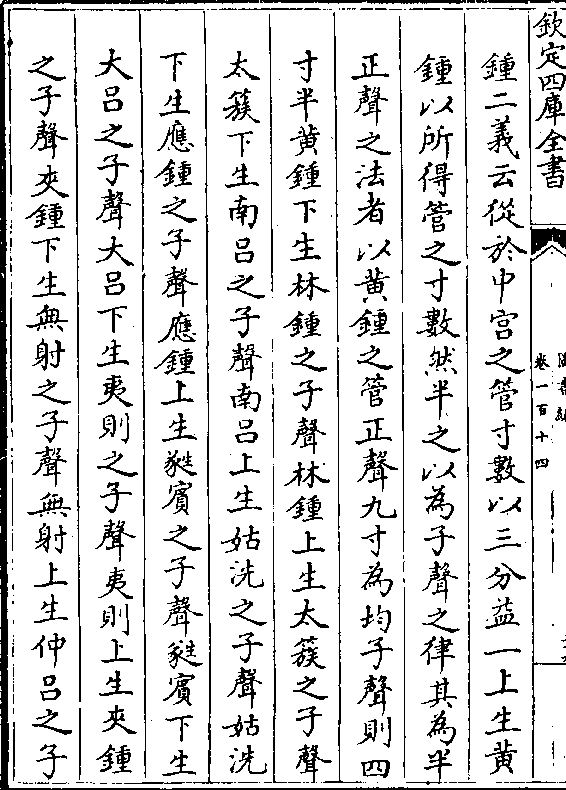 欽定四庫全書
卷一百十四
鍾二義云從於中宫之管寸數以三分益一上生黄
鍾以所得管之寸數然半之以為子聲之律其為半
正聲之法者以黄鍾之管正聲九寸為均子聲則四
寸半黄鍾下生林鍾之子聲林鍾上生太簇之子聲
太簇下生南吕之子聲南吕上生姑洗之子聲姑洗
下生應鍾之子聲應鍾上生蕤賓之子聲蕤賓下生
大吕之子聲大吕下生夷則之子聲夷則上生夾鍾
之子聲夾鍾下生無射之子聲無射上生仲吕之子